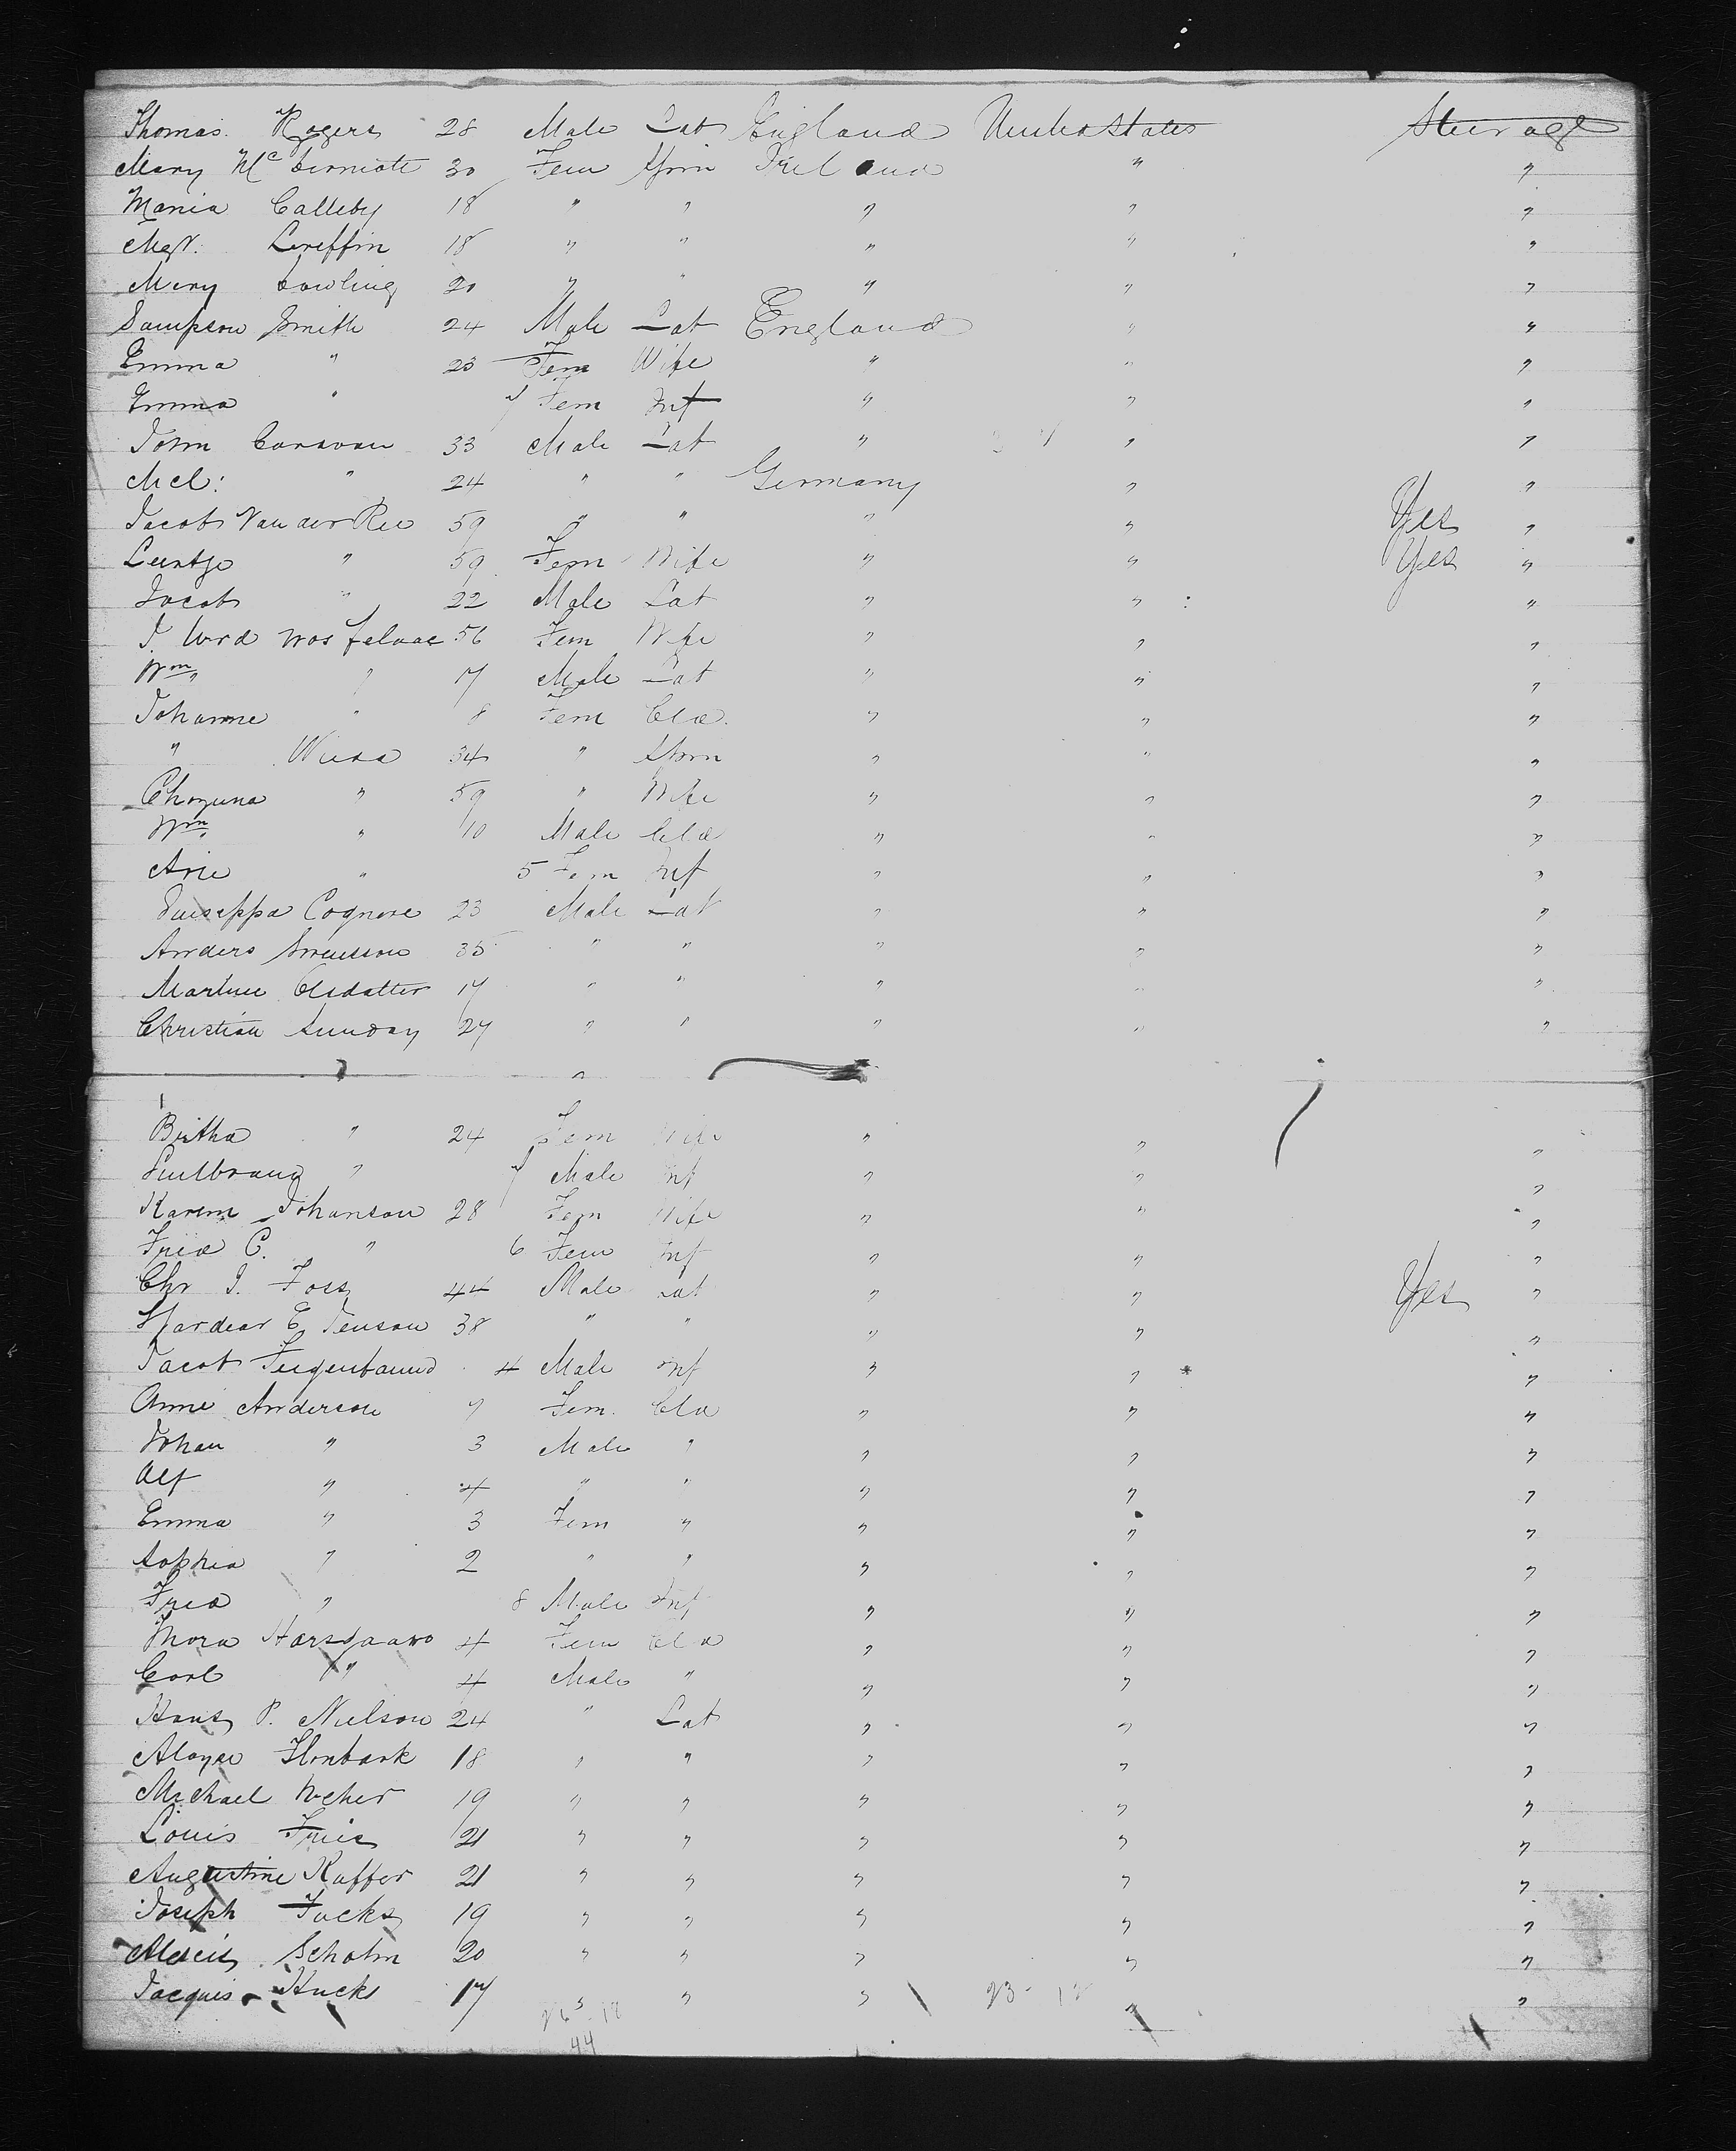 Thomas Rogers 28 Male Lab England United States Steerage
Mary Mc 30 Fem Spin Ireland " "
Maria Calleby 18 " " " " "
Mgt. Griffin 18 " " " " "
Mary Dowling 20 " " " " "
Sampson Smith 24 Male Lab England " "
Emma " 23 Fem Wife " " "
Emma " Fem Inf " " "
John Caravan 33 Male Lab " " "
Mel: " 24 " " Germany " "
Jacob Van der Ree 59 " " " " Yes "
Leentje " 59 Fem Wife " " Yes "
Jacob " 22 Male Lab " " "
J. 56 Fem Wife " " "
Wm " 17 Male Lab " " "
Johanne " 8 Fem Cld " " "
" 34 " Spin " " "
" 59 " Wife " " "
Wm " 10 Male Cld " " "
Arie " 5 Fem Inf " " "
Guiseppa Cognore 23 Male Lab " " "
Anders Swensson 35 " " " " "
Martine Olsdatter 17 " " " " "
Christian Sunday 27 " " " " "
Bertha " 24 Fem Wife " " "
Gulbrand " Male Inf " " "
Karem Johanson 28 Fem Wife " " "
Fred C. " 6 Fem Inf " " "
Chr J. Foss 44 Male Lab " " Yes "
E Jenson 38 " " " " "
Jacob Feigenbaum 4 Male Inf " " "
Anne Anderson 7 Fem. Cld " " "
Johan " 3 Male " " " "
Alf " 4 " " " " "
Emma " 3 Fem " " " "
Sophia " 2 " " " " "
Fred " 8 Male Inf " " "
Thora 4 Fem Cld " " "
Carl " 4 Male " " " "
Hans P. Nielson 24 " Lab " " "
18 " " " " "
Michael Weher 19 " " " " "
Louis 21 " " " " "
Augustine Kaffer 21 " " " " "
Joseph Fucks 19 " " " " "
Alexis Scholm 20 " " " " "
Jacques Hucks 17 " " " " "
44